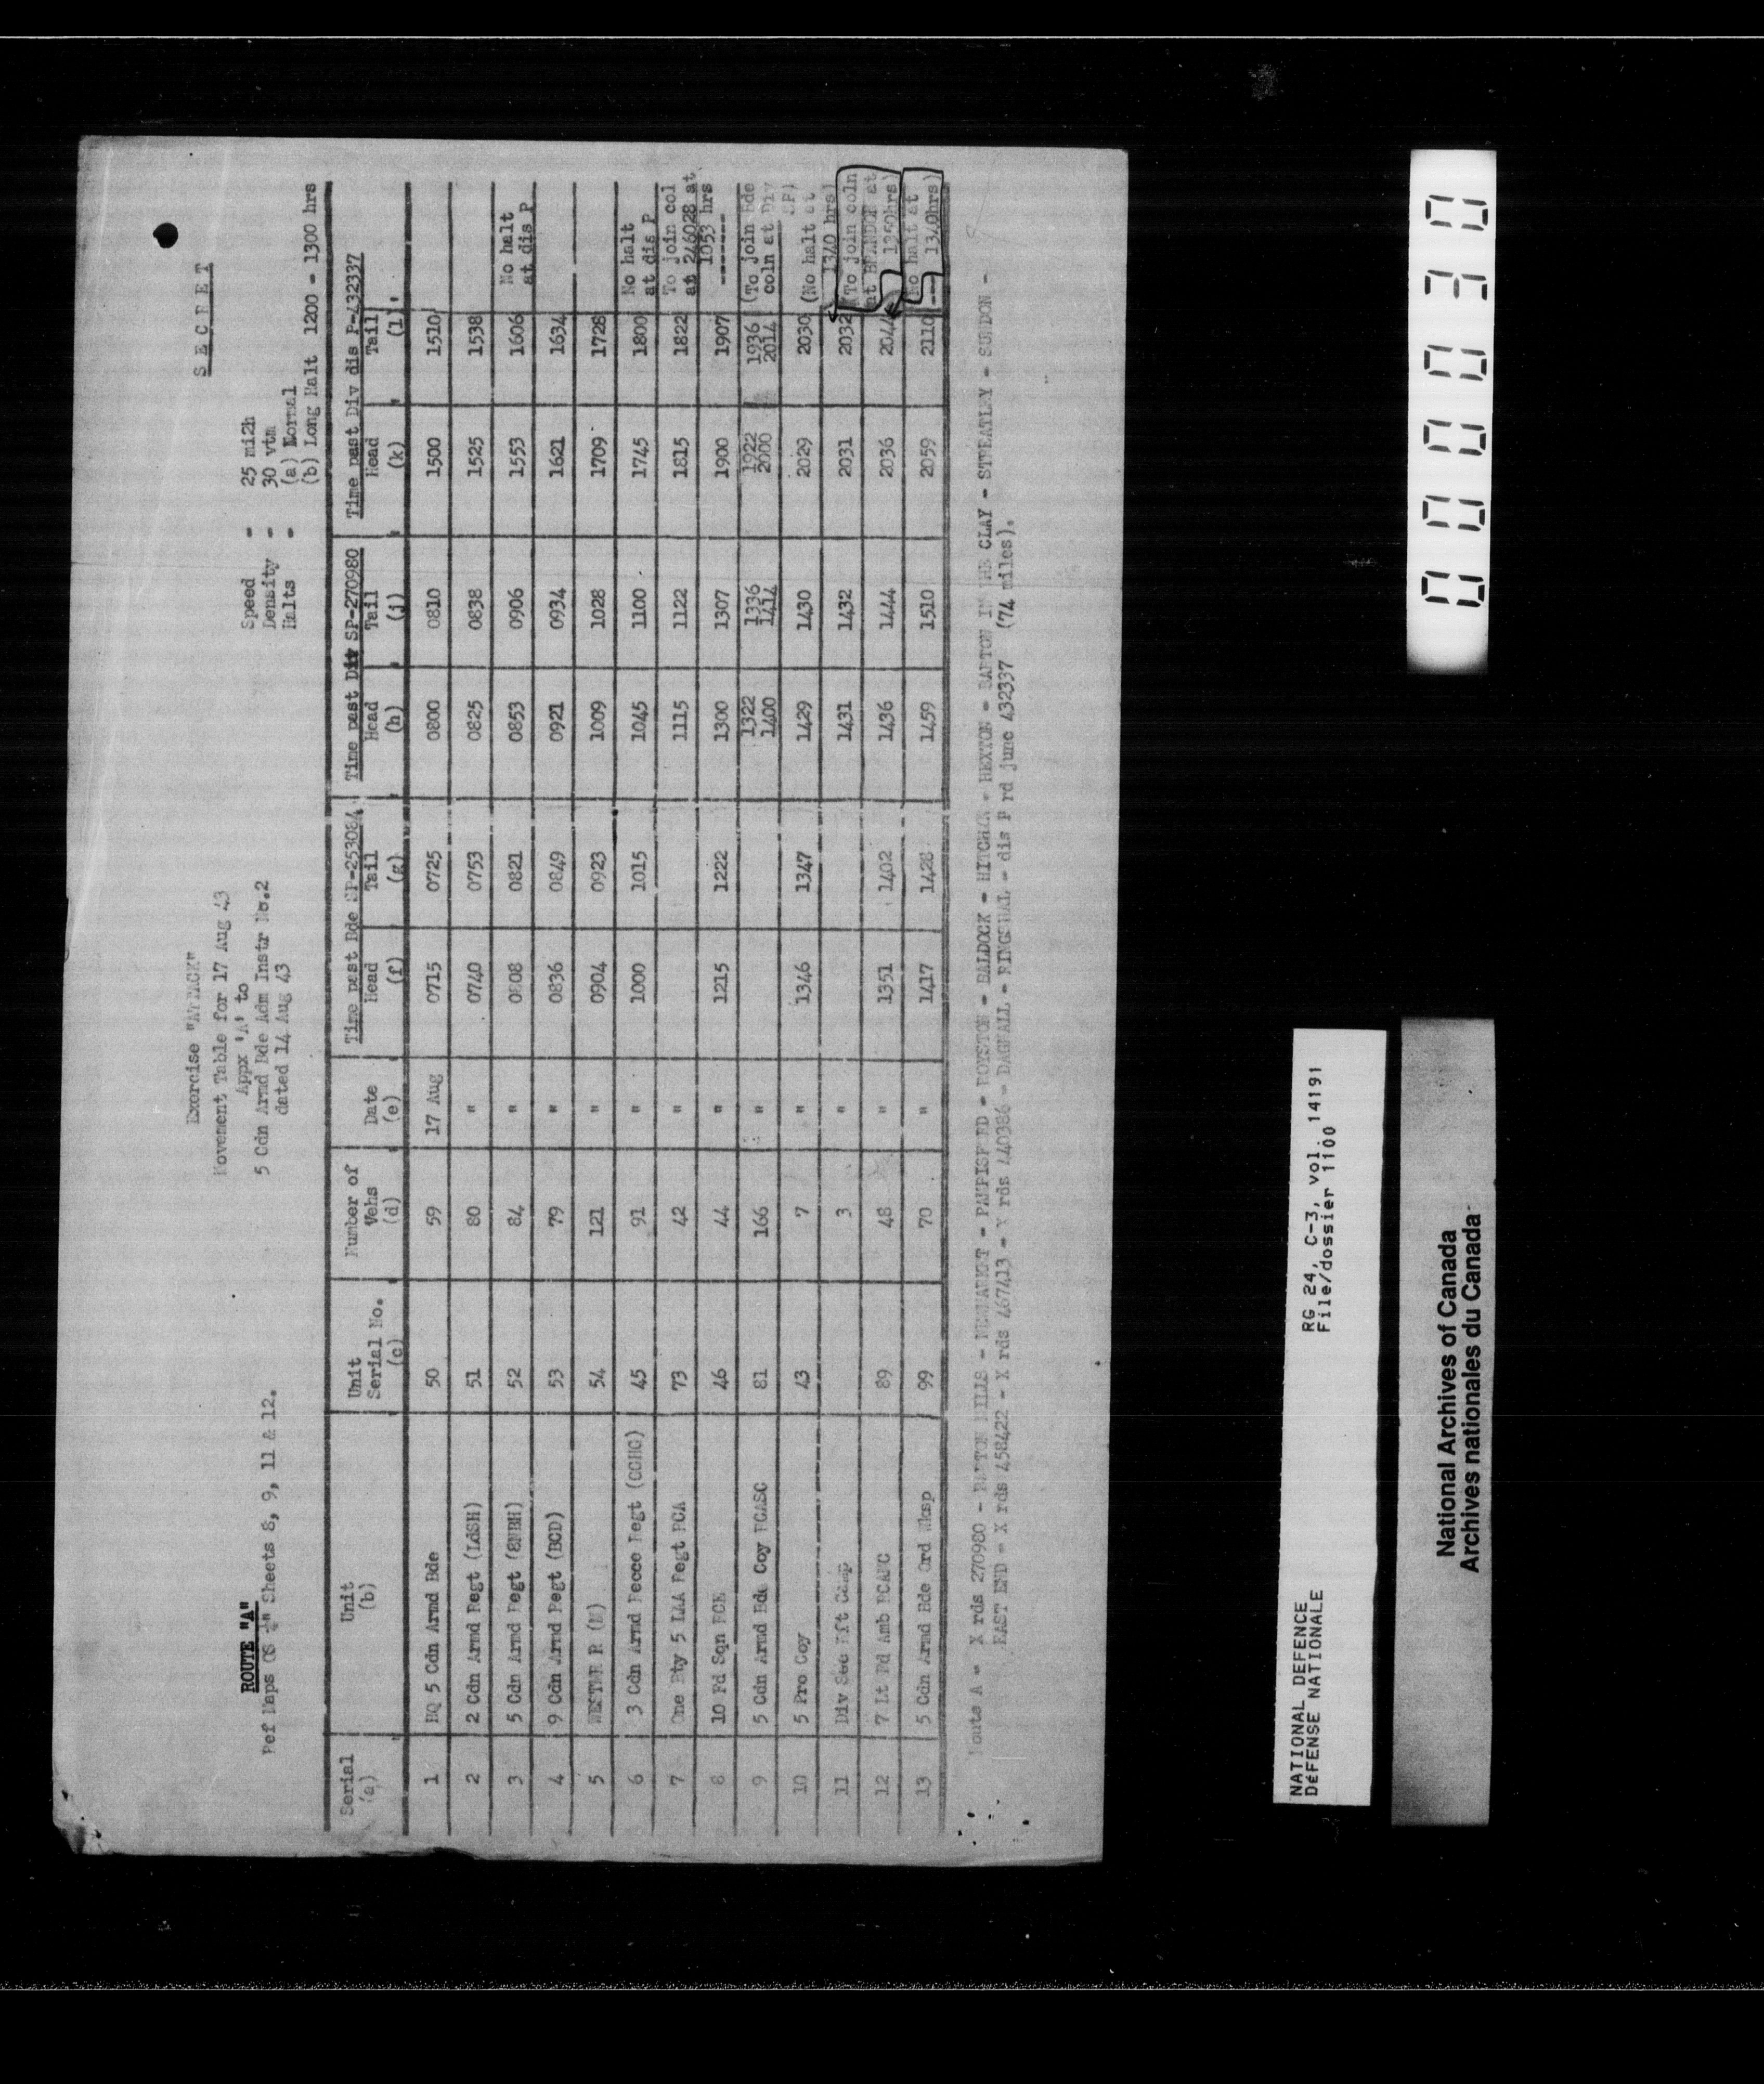 SECRET
Exercise "ATTACK"
Movement Table for 17 Aug 43
Appx 'A' to
5 Cdn Armd Bde Adm Instr No.2
dated 14 Aug 43
ROUTE "A"
Ref Maps GS ¼" Sheets 8, 9, 11 & 12.
Speed - 25 mi2h
Density - 30 vtm
Halts - (a) Normal
(b) Long Halt 1200 - 1300 hrs
Serial Unit Unit Serial No. Number of Vehs Date Time past Bde SP-253084 Time past Div SP-270980 Time past Div dis P-432337
Head Tail Head Tail Head Tail
(a) (b) (c) (d) (e) (f) (g) (h) (j) (k) (l)
1 HQ 5 Cdn Armd Bde 50 59 17 Aug 0715 0725 0800 0810 1500 1510
2 2 Cdn Armd Regt (LdSH) 51 80 " 0740 0753 0825 0838 1525 1538
3 5 Cdn Armd Regt (8NBH) 52 84 " 0808 0821 0853 0906 1553 1606 No halt at dis P
4 9 Cdn Armd Regt (BCD) 53 79 " 0836 0849 0921 0934 1621 1634
5 WESTMR R (M) 54 121 " 0904 0923 1009 1028 1709 1728
6 3 Cdn Armd Recce Regt (GGHG) 45 91 " 1000 1015 1045 1100 1745 1800 No halt at dis P
7 One Bty 5 LAA Regt RCA 73 42 " 1115 1122 1815 1822 To join col at 246028 at 1053 hrs
8 10 Fd Sqn RCE 46 44 " 1215 1222 1300 1307 1900 1907 ------
9 5 Cdn Armd Bde Coy RCASC 81 166 " 1322 1336 1922 1936 (To join Bde
1400 1414 2000 2014 coln at Div SP)
10 5 Pro Coy 43 7 " 1346 1347 1429 1430 2029 2030 (No halt at 1340 hrs)
11 Div Sec Lft Camp 3 " 1431 1432 2031 2032 (To join coln at BRANDON at 1350hrs)
12 7 Lt Fd Amb RCAMC 89 48 " 1351 1402 1436 1444 2036 2044 No halt at 1340hrs)
13 5 Cdn Armd Bde Ord Wksp 99 70 " 1417 1428 1459 1510 2059 2110 ---
Route A - X rds 270980 - BARTON MILLS - NEWMARKET - PAMPISFORD - ROYSTON - BALDOCK - HITCHIN - HEXTON - BARTON IN THE CLAY - STREATLEY - SUNDON -
EAST END - X rds 458422 - X rds 467413 - X rds 440386 - DAGNALL - RINGSHALL - dis P rd junc 432337 (74 miles).
0000030
NATIONAL DEFENCE RG 24, C-3, vol. 14191
DÉFENSE NATIONALE File/dossier 1100
National Archives of Canada
Archives nationales du Canada